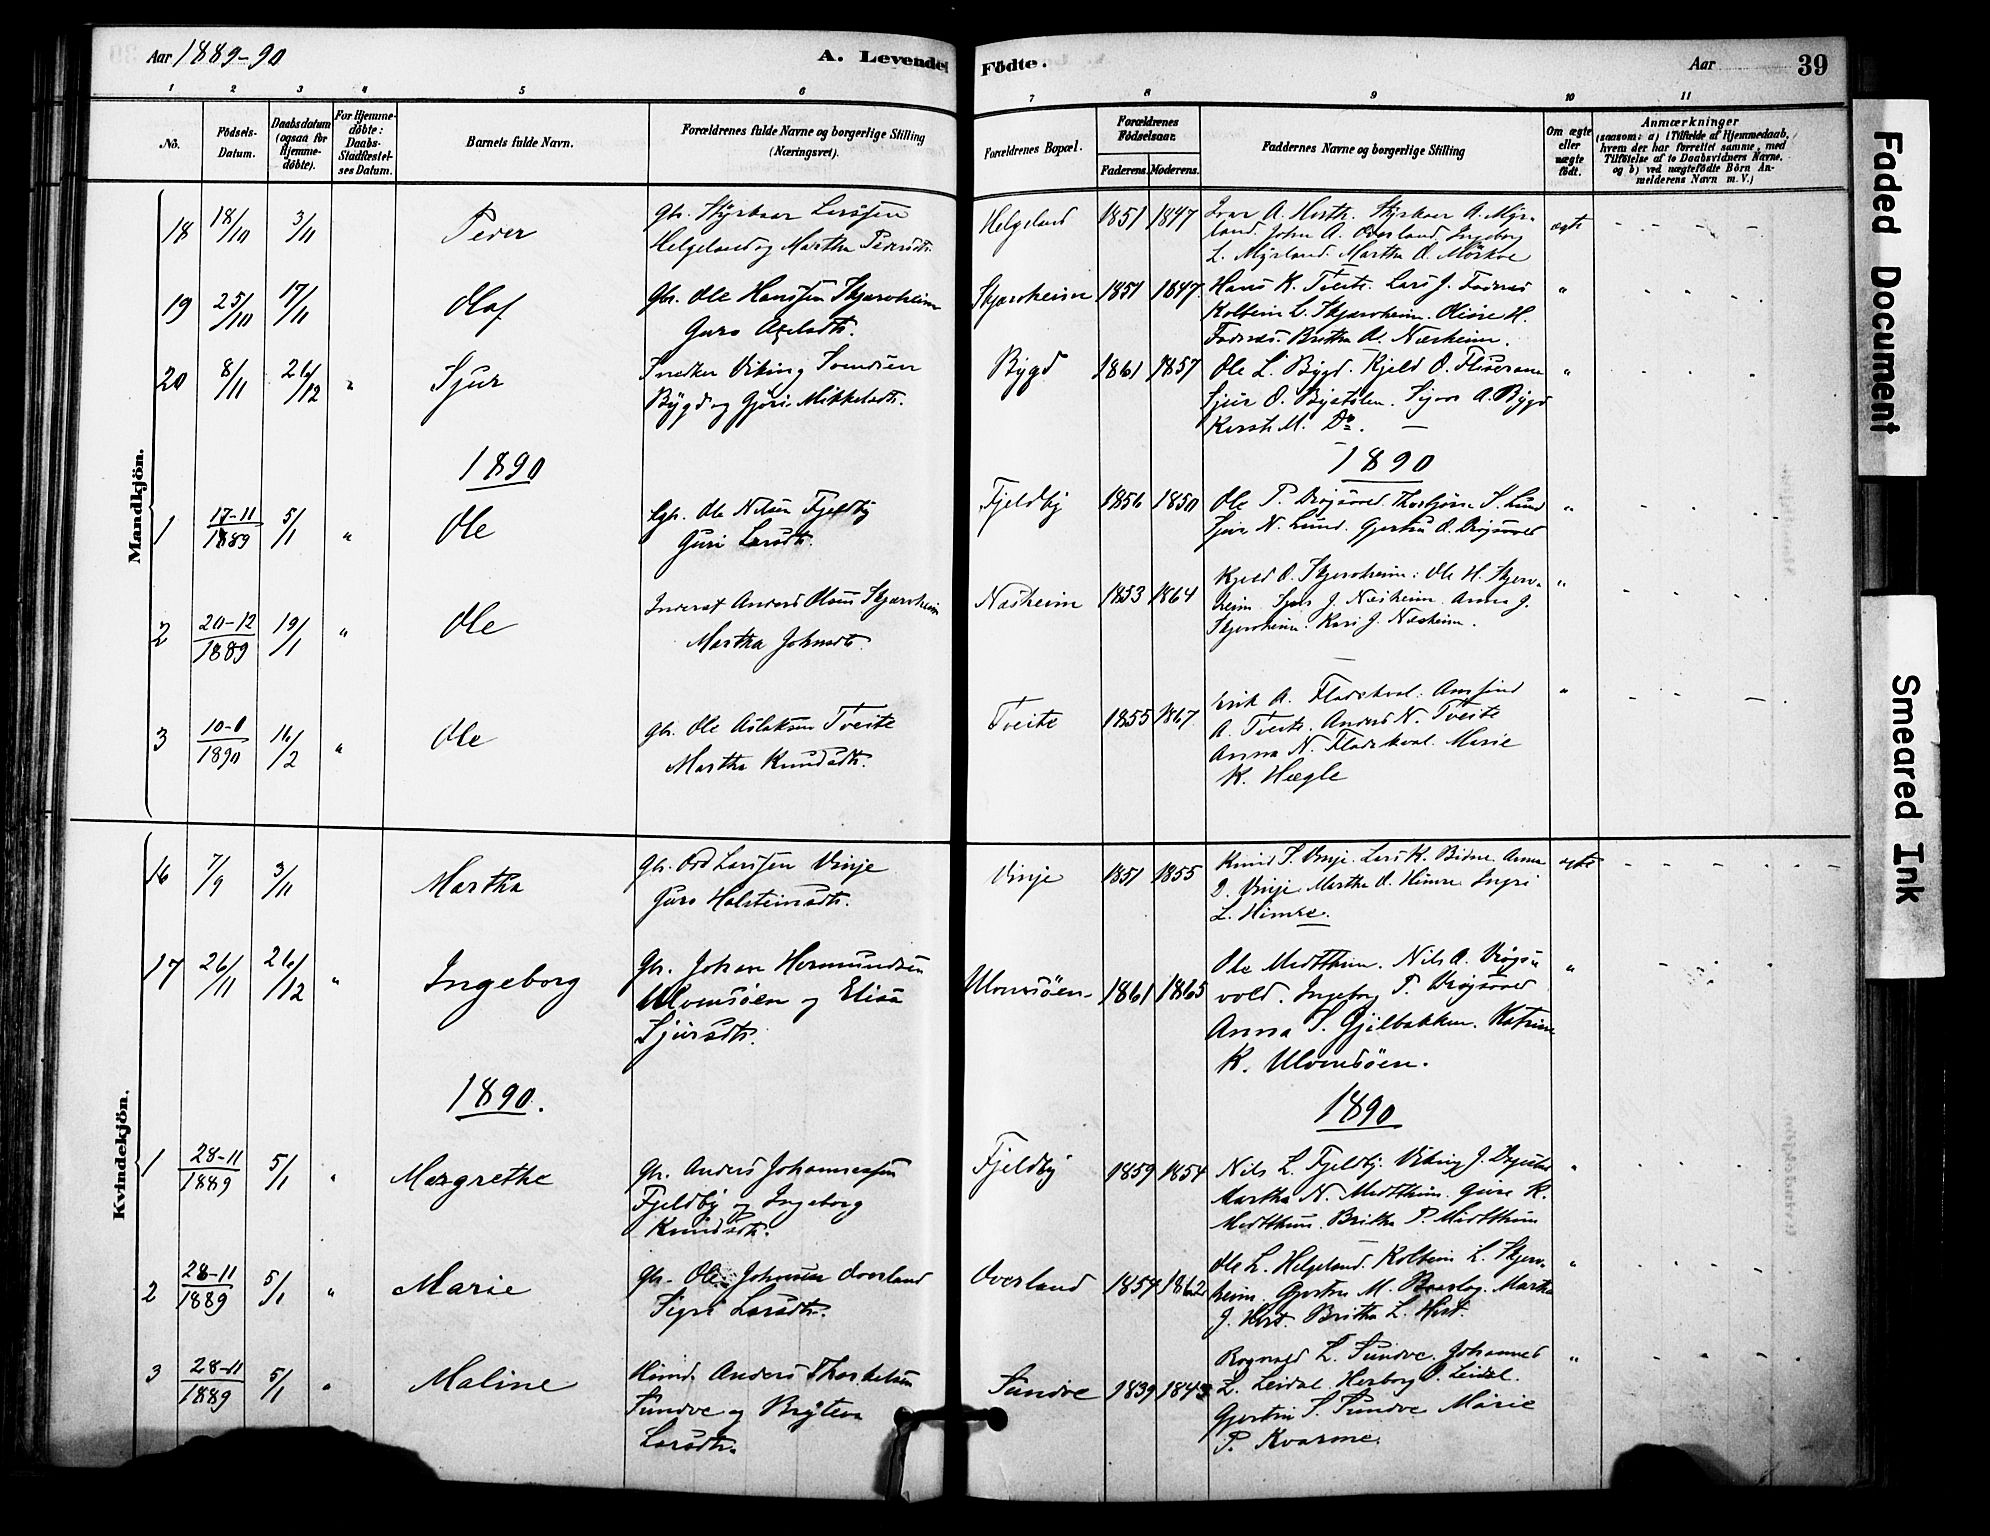 Aar 1889-90
A. Levendef
Födte.
Aar
39
1 2 3 4 5 6 7 8 9 10 11
No.
Födsels-
Datum.
Daabsdatum
(ogsaa for
Hjemme-
döbte).
For Hjemme-
döbte:
Daabs-
Stadfæstel-
ses Datum.
Barnets fulde Navn.
Forældrenes fulde Navne og borgerlige Stilling
(Næringsvei).
Forældrenes Bopæl.
Forældrenes
Födselsaar.
Faderens. Moderens.
Faddernes Navne og borgerlige Stilling
Om ægte
eller
uægte
født.
Anmærkninger
(saasom: a) i Tilfælde af Hjemmedaab,
hvem der har forrettet samme, med
Tilföielse af to Daabsvidners Navne,
og b) ved uægtefödte Börn An-
melderens Navn m. V.)
Mandkjön.
18 18/10 3/11 Peder
Gbr. Styrkaar Larssen
Helgeland og Martha Pedersdtr.
Helgeland 1851 1847
Ivar A. Horth. Styrkaar A. Myr-
land. John A. Overland. Ingeborg
L. Myrland. Martha O. Mörkve
ægte
19 25/10 17/11 Olaf
Gbr. Ole Hanssen Skjærvheim
Guro Axelsdtr.
Skjærvheim 1851 1847
Hans K. Tveite. Lars J. Fadnes
Kolbein L. Skjærvheim. H.
Fadnes. Britha A. Næsheim.
"
20 8/11 26/12 " Sjur
Snedker Viking Svendsen
Bygd og Gjøri Mikkelsdtr.
Bygd 1861 1857
Ole L. Bygd. Kjeld O.
Sjur O. A. Bygd
M. Do. —
"
1890
1890
1 17-11/1889 5/1 " Ole
Gbr. Ole Nilsen Fjeldby
Guri Larsdtr.
Fjeldby 1856 1850
Ole P. S. Lund
N. Lund. Gjertru O.
"
2 20-12/1889 19/1 " Ole
Inderst Anders Olsen Skjærvheim
Martha Johnsdtr.
Næsheim 1853 1864
Kjeld O. Skjervheim. Ole H. Skjerv-
heim. J. Næsheim. Anna J.
Skjervheim. Kari J. Næsheim.
"
3 10-1/1890 16/2 " Ole
Gbr. Ole Aslaksen Tveite
Martha Knudsdtr.
Tveite 1855 1867
Erik A. Fladekval. Amfind
A. Tveite. Anders N. Tveite
Anna N. Fladekval. Marie
K. Hægle
"
Kvindekjön.
16 7/9 3/11 Martha
Gbr. Odd Larssen Vinje
Guro Halsteinsdtr.
Vinje 1851 1855
Knud S. Vinje. Lars K. Bidne. Anna
O. Vinje. Martha O. Himre. Ingri
L. Himre.
ægte
17 26/11 26/12 " Ingeborg
Gbr. Johan Hermundsen
Ulvundsöen og Elisa
Sjursdtr.
1861 1865
Ole Medtthun. Nils A.
vold. Ingeborg P.
Anna S. Gjelbakken. Katrine
K.
"
1890.
1890
1 28-11/1889 5/1 " Margrethe
Gbr. Anders Johannessen
Fjeldby og Ingeborg
Knudsdtr.
Fjeldby 1859 1854
Nils L. Fjeldby. Viking J.
Martha N. Medtthun. K.
Medtthun. Britha P. Medtthun
"
2 28-11/1889 5/1 " Marie
Gbr. Ole Johnsen Overland
Sigri Larsdtr.
Overland 1854 1862
Ole L. Helgeland. Kolbein L. Skjerv-
heim. Gjertru M. Martha
J. Britha L.
"
3 28-11/1889 5/1 " Maline
Anders Thorkelsen
Sundve og Bryteva
Larsdtr.
Sundve 1839 1843
Rognald L. Sundve. Johannes
L. Leidal. Herborg O. Leidal.
Gjertru S. Sundve Marie
P. Kvarme.
"
Faded Document
Smeared Ink